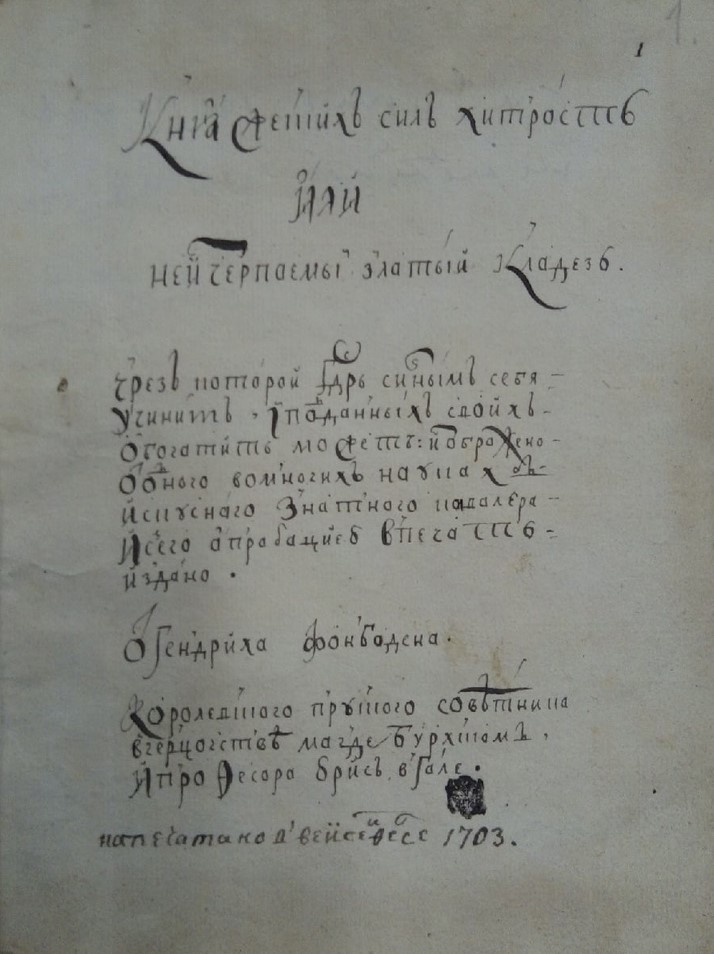 1
1.
Книга Фетихъ силъ хитрость
Или
неичерпаемыи златыи Кладезь.
чрезъ которой Гдрь силнымъ себя
учинитъ, I подданныхъ своихъ
обогатить можетъ:
во многихъ науках
искуснаго Знатнаго кавалера
И сего апробациею въ печать
издано.
О Гендриха фонбодена.
Королевского пруского совѣтника
вгерцогствѣ магдебурхскомъ,
И професора
напечатано в вейсенфесе 1703.